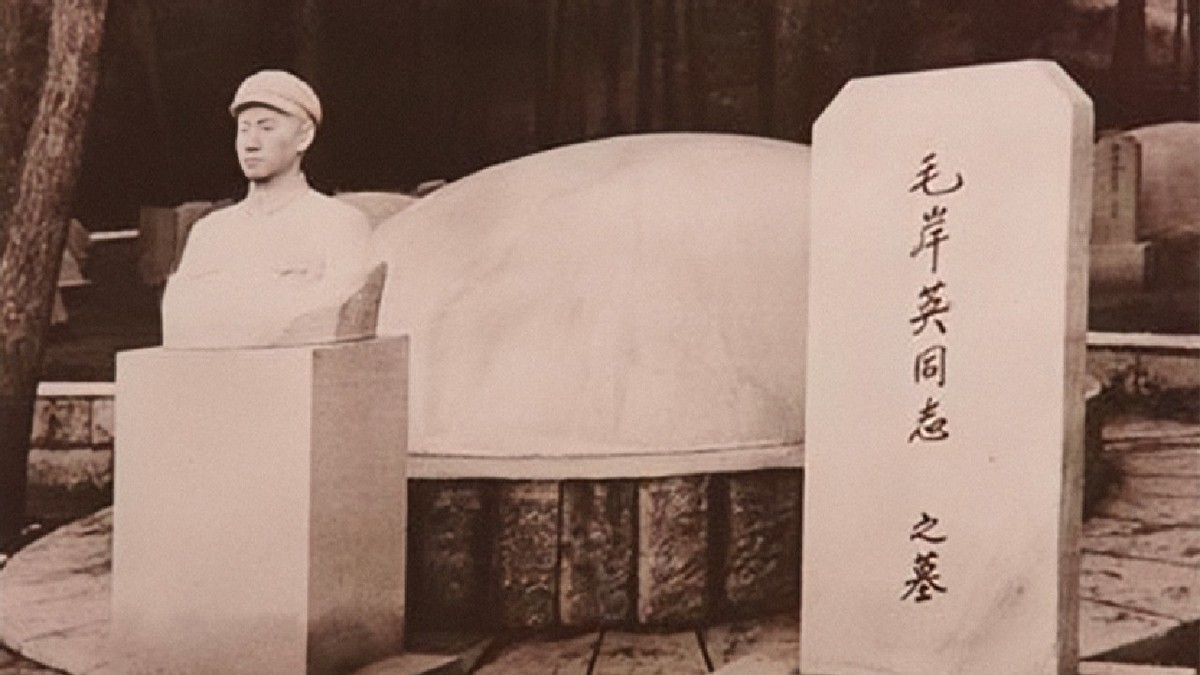 毛岸英同志 之墓